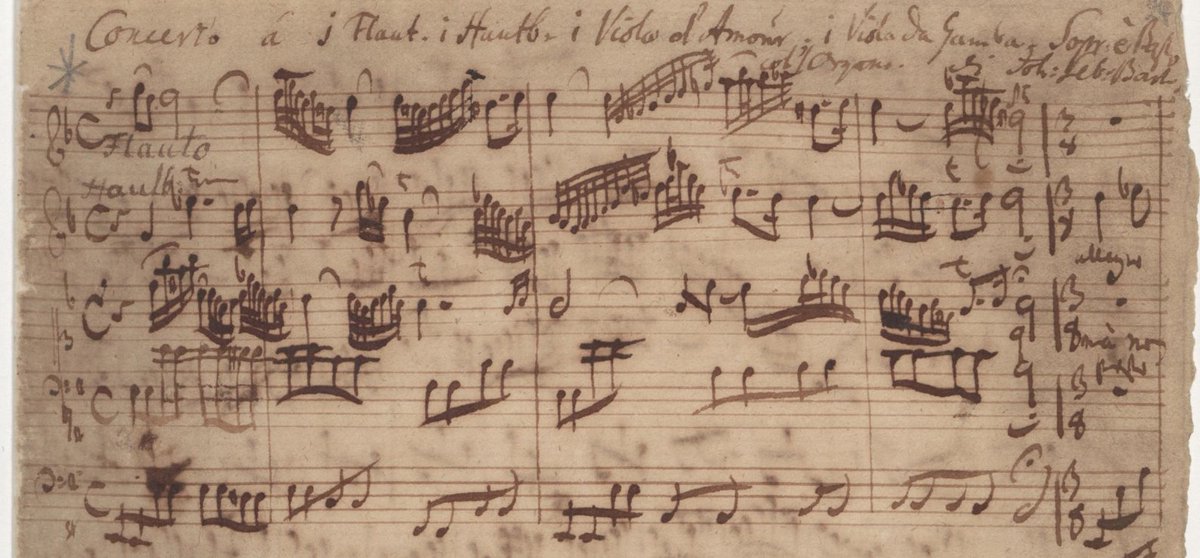 Concerto á 1 Flaut. 1 Hautb. 1 Viola d'Amour. 1 Viola da Gamba. Sopr. è Bass.
col Organo. Joh. Seb. Bach
Flauto
Hautb.
allegro
mà non
presto